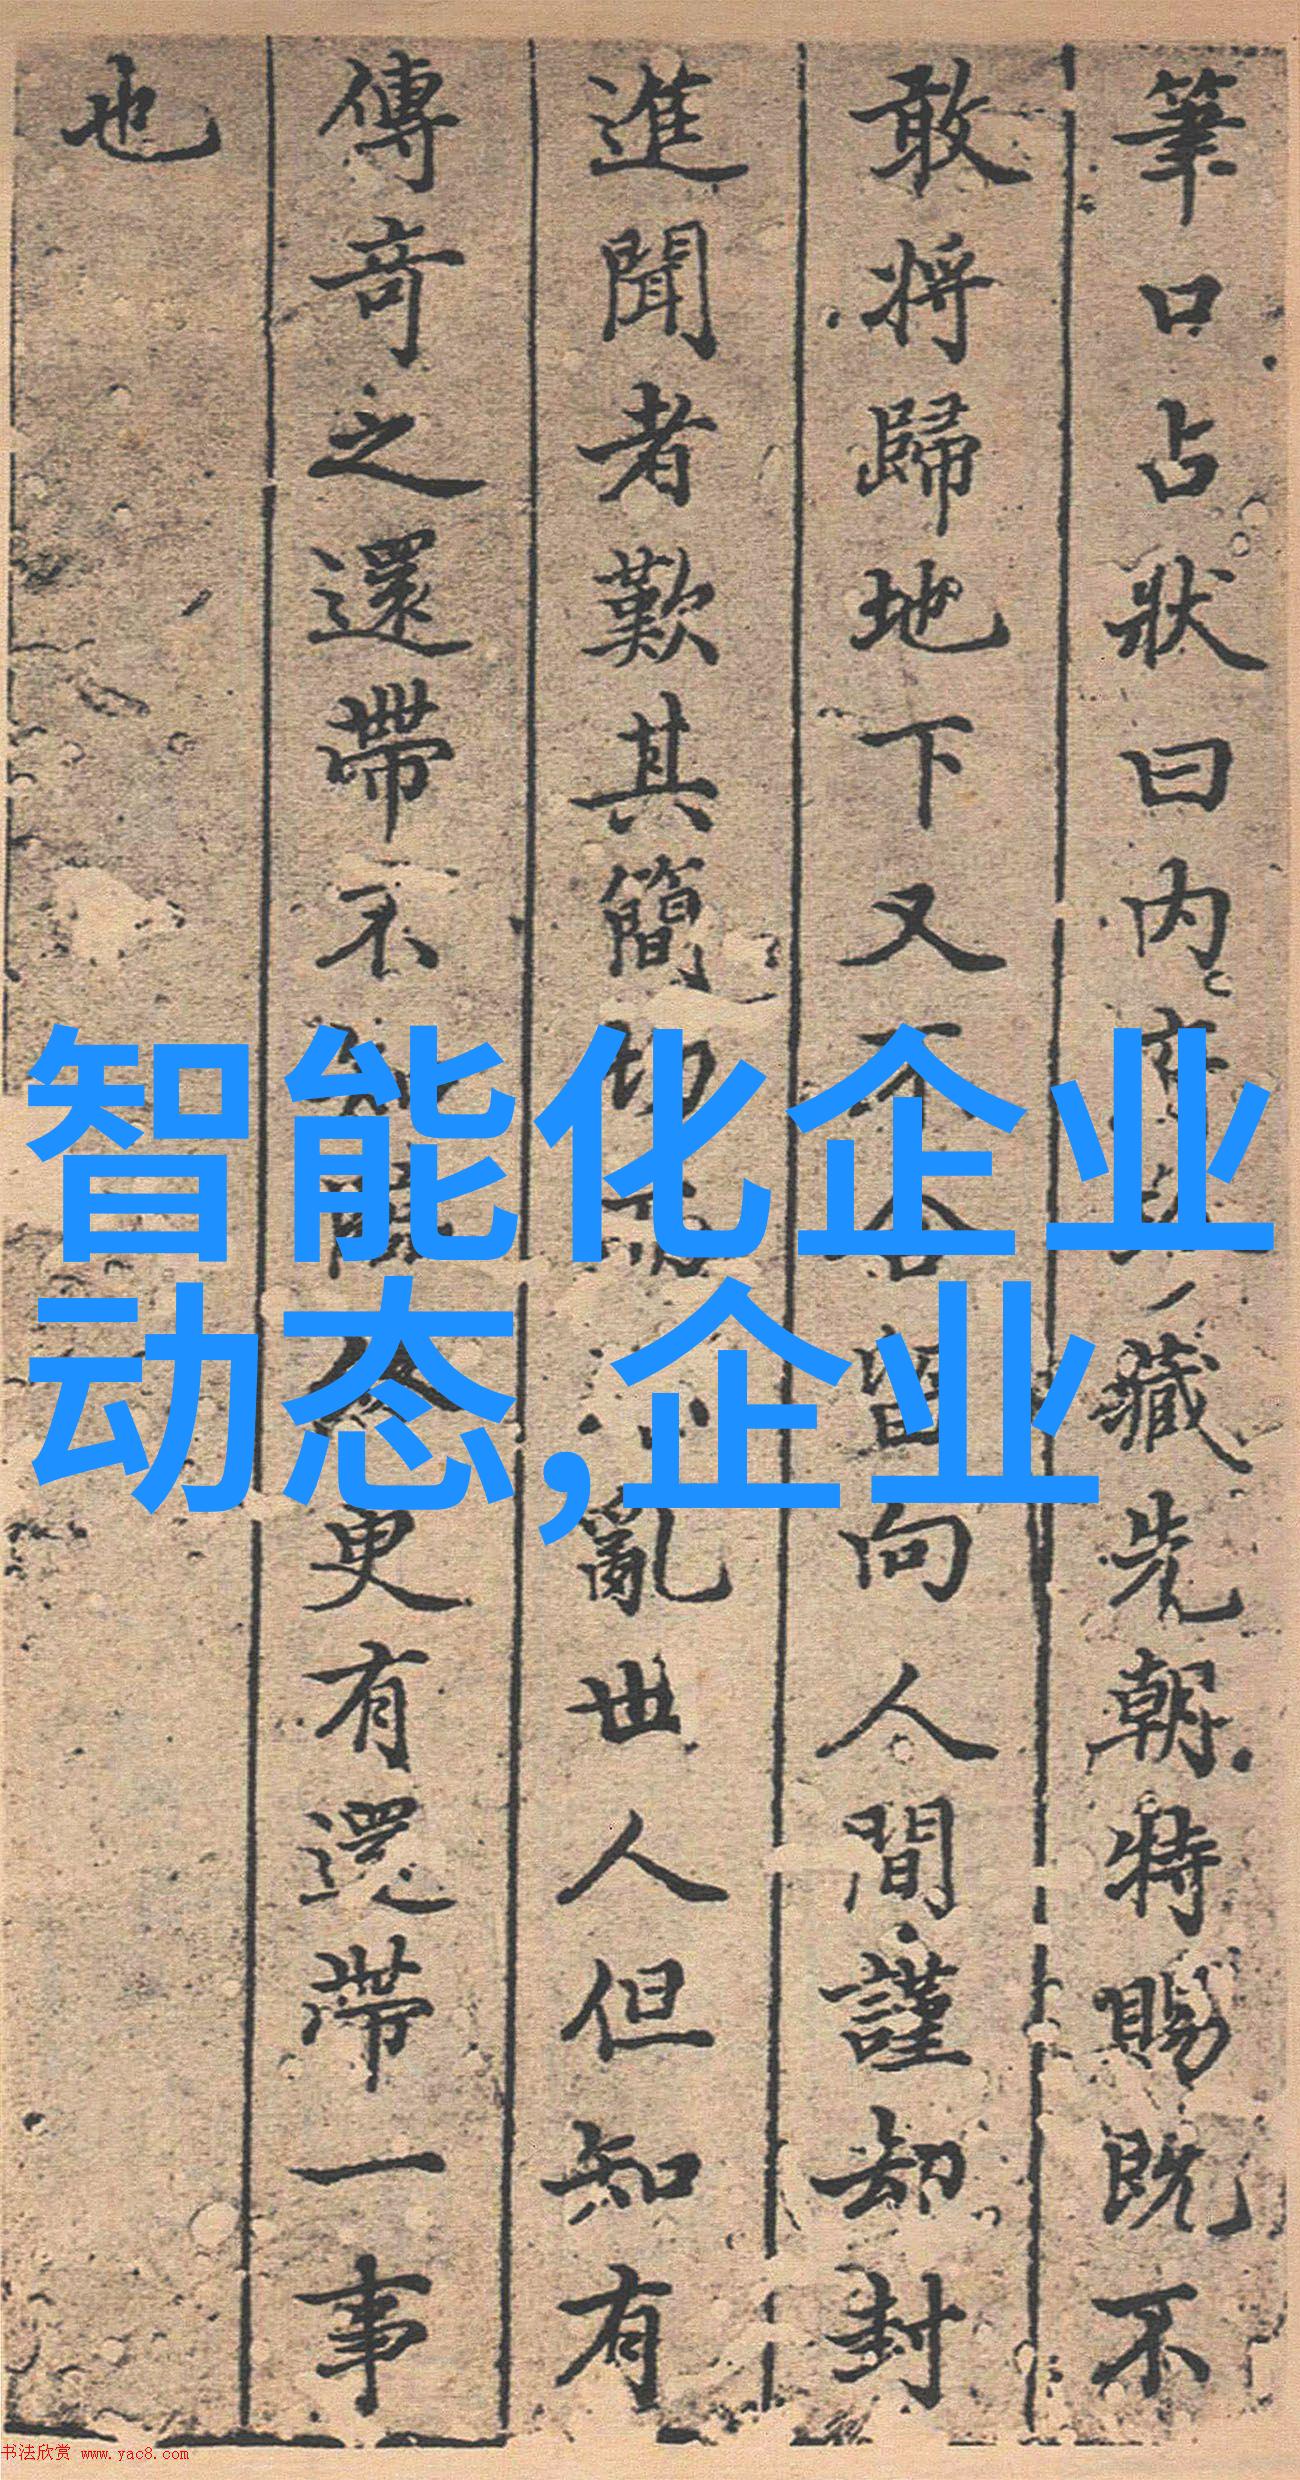 筆口占狀曰内藏先朝特賜既不
敢將歸地下又不合留向人間謹却封
進聞者歎其簡切而不亂世人但知有
傳奇之還帶不更有還帶一事
也
智能化企业
动态,企业
书法欣赏 www.yac8.com